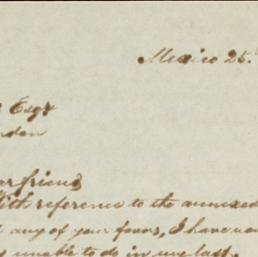 Mexico 25
Esqr
ndon
ar friend
ith reference to the annexed
any of your favors, I have
unable to do in my last